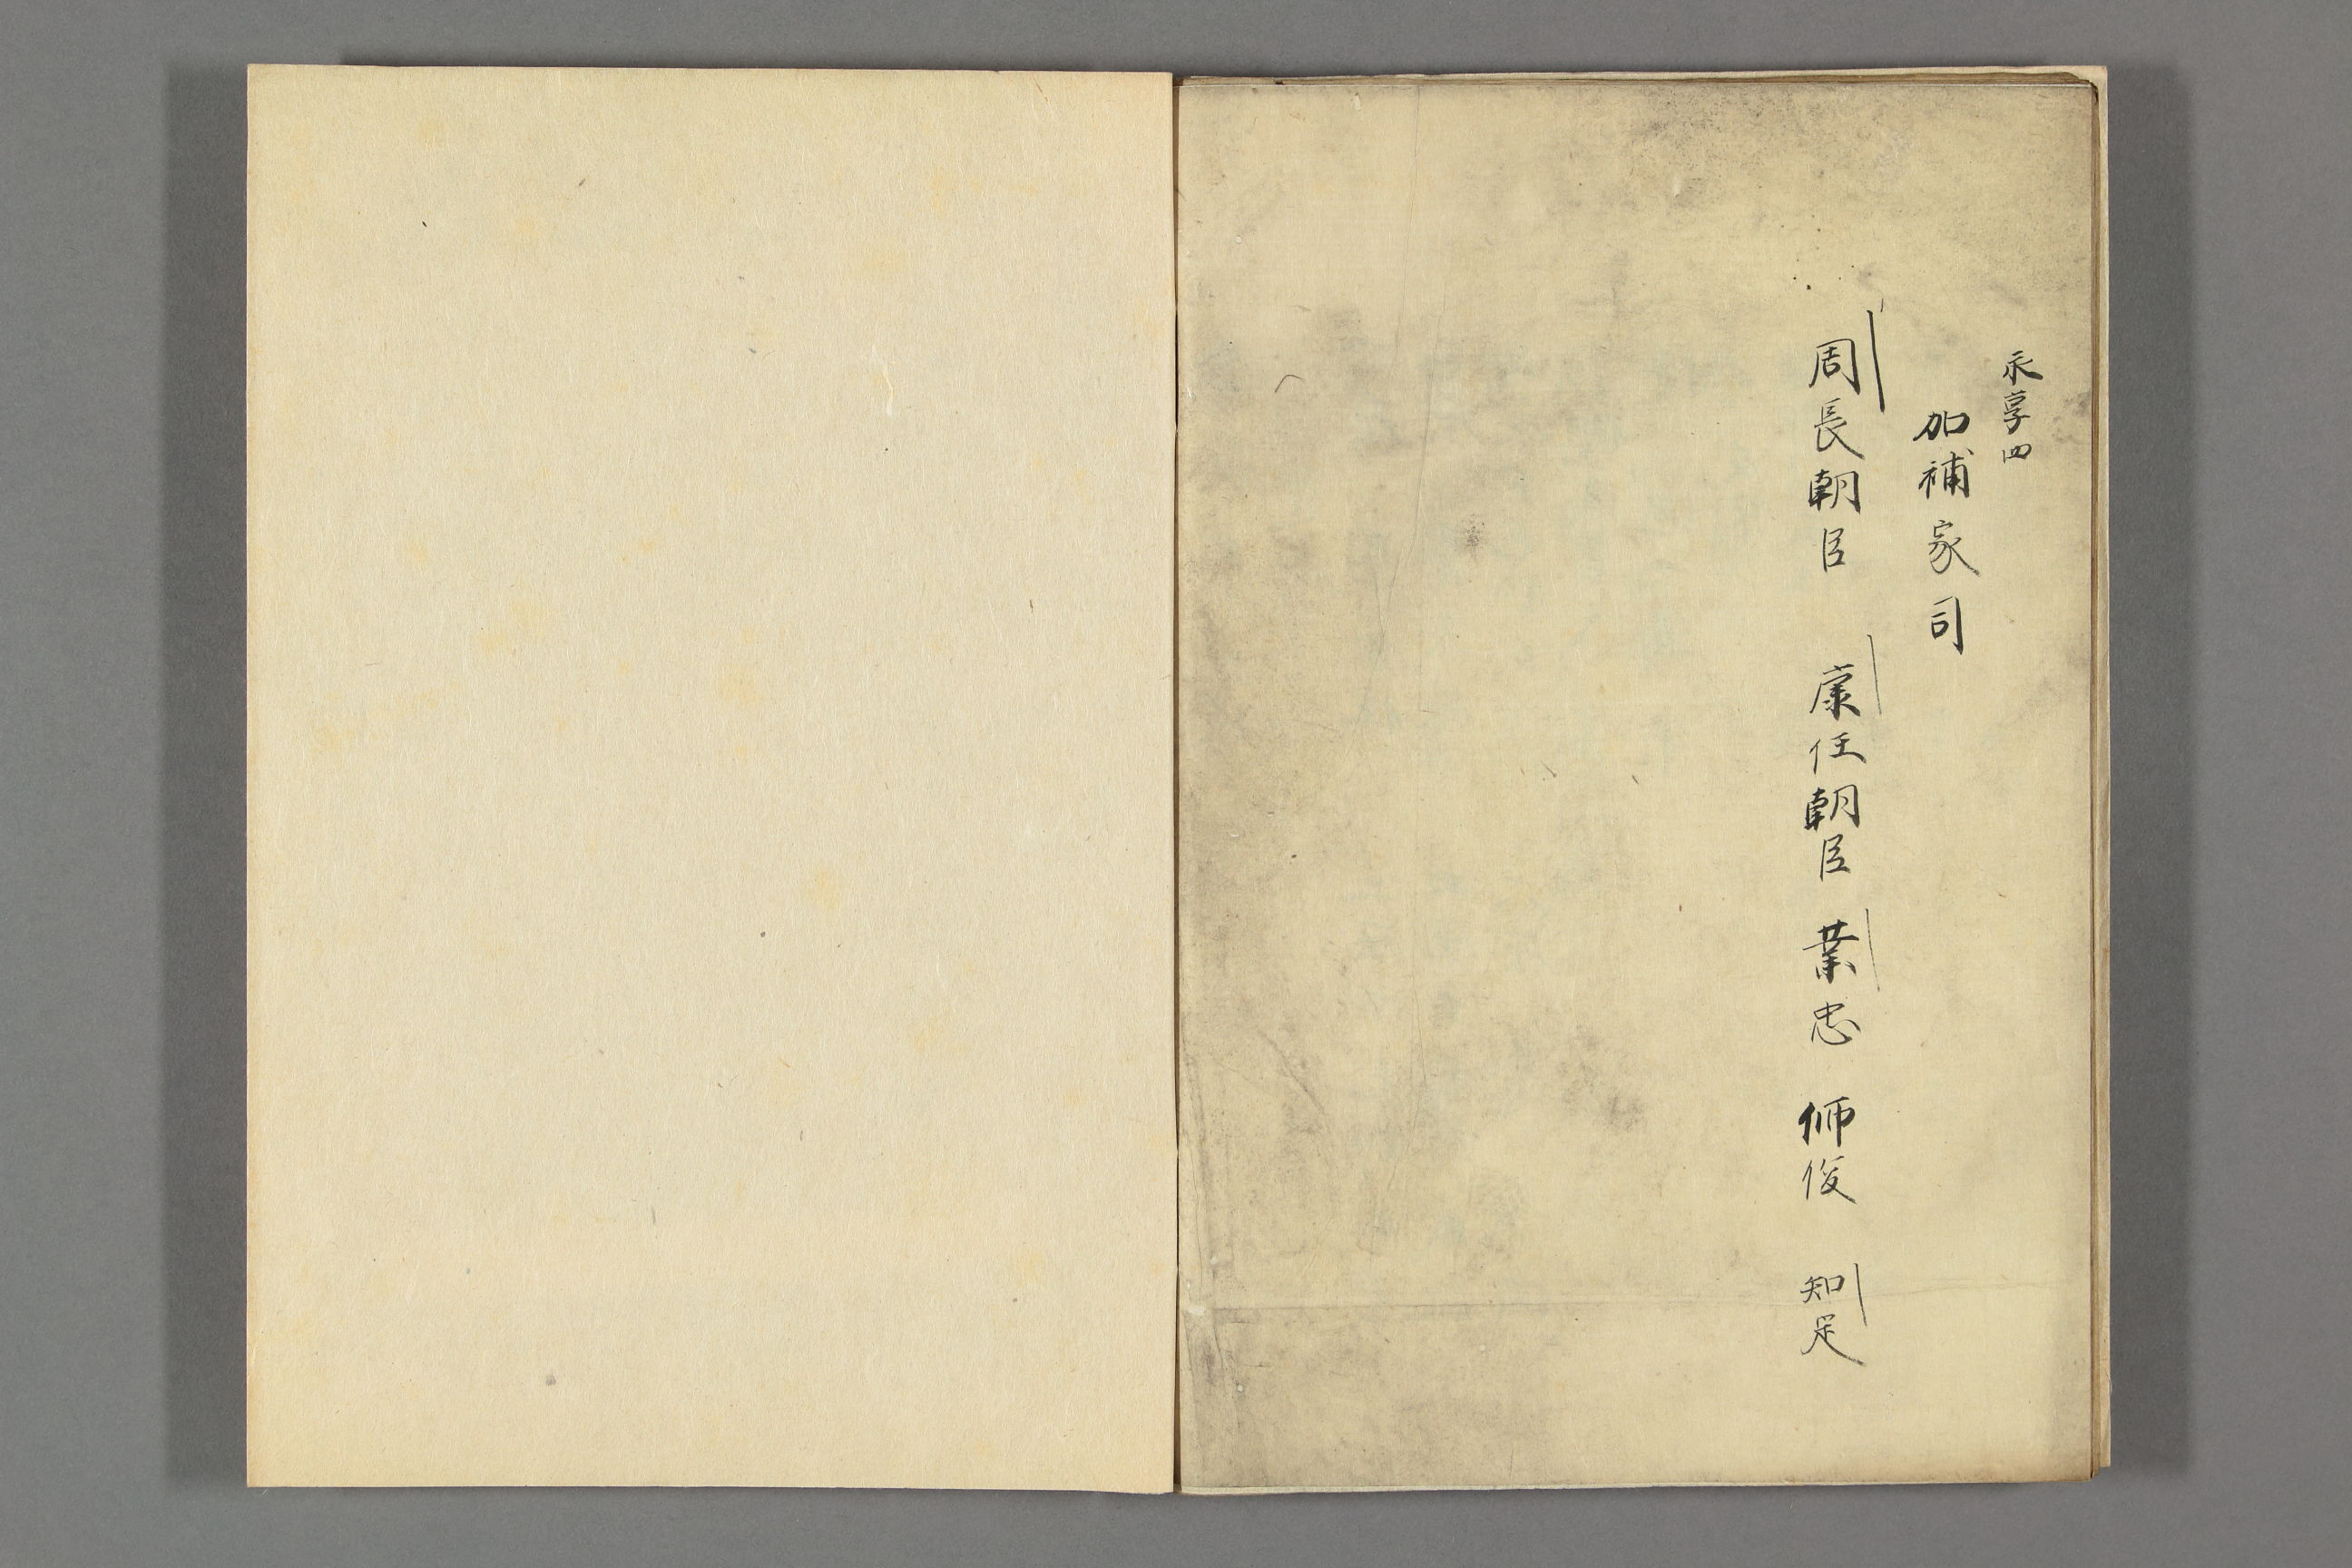 永享四
加補家司
周長朝臣 康任朝臣 業忠 師俊 知足